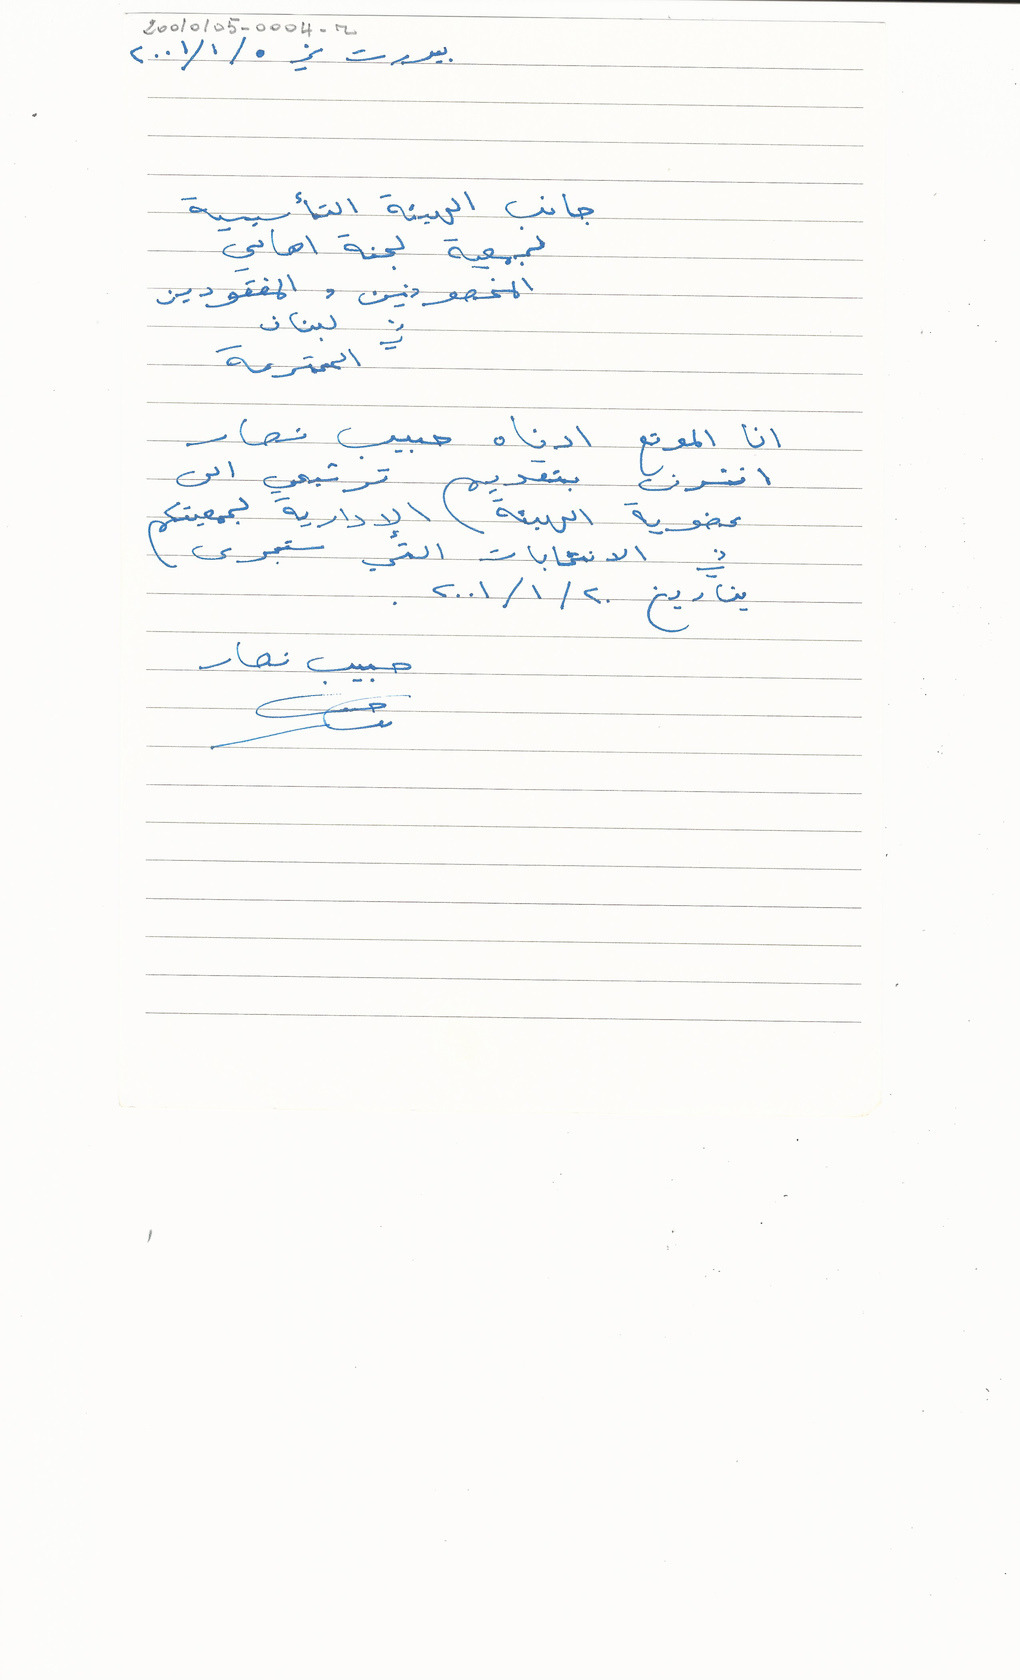 20010105-0004-
بيروت في ٢٠٠١/١/٥
جانب الهيئة التأسيسية
لجمعية لجنة اهالي
المخطوفين و المفقودين
في لبنان
المحترمة
انا الموقع ادناه حبيب نصار
اتشرف بتقديم ترشيحي الى
عضوية الهيئة الادارية لجمعيتكم
في الانتخابات التي ستجرى
بتاريخ ٢٠٠١/١/٢٠ .
حبيب نصار